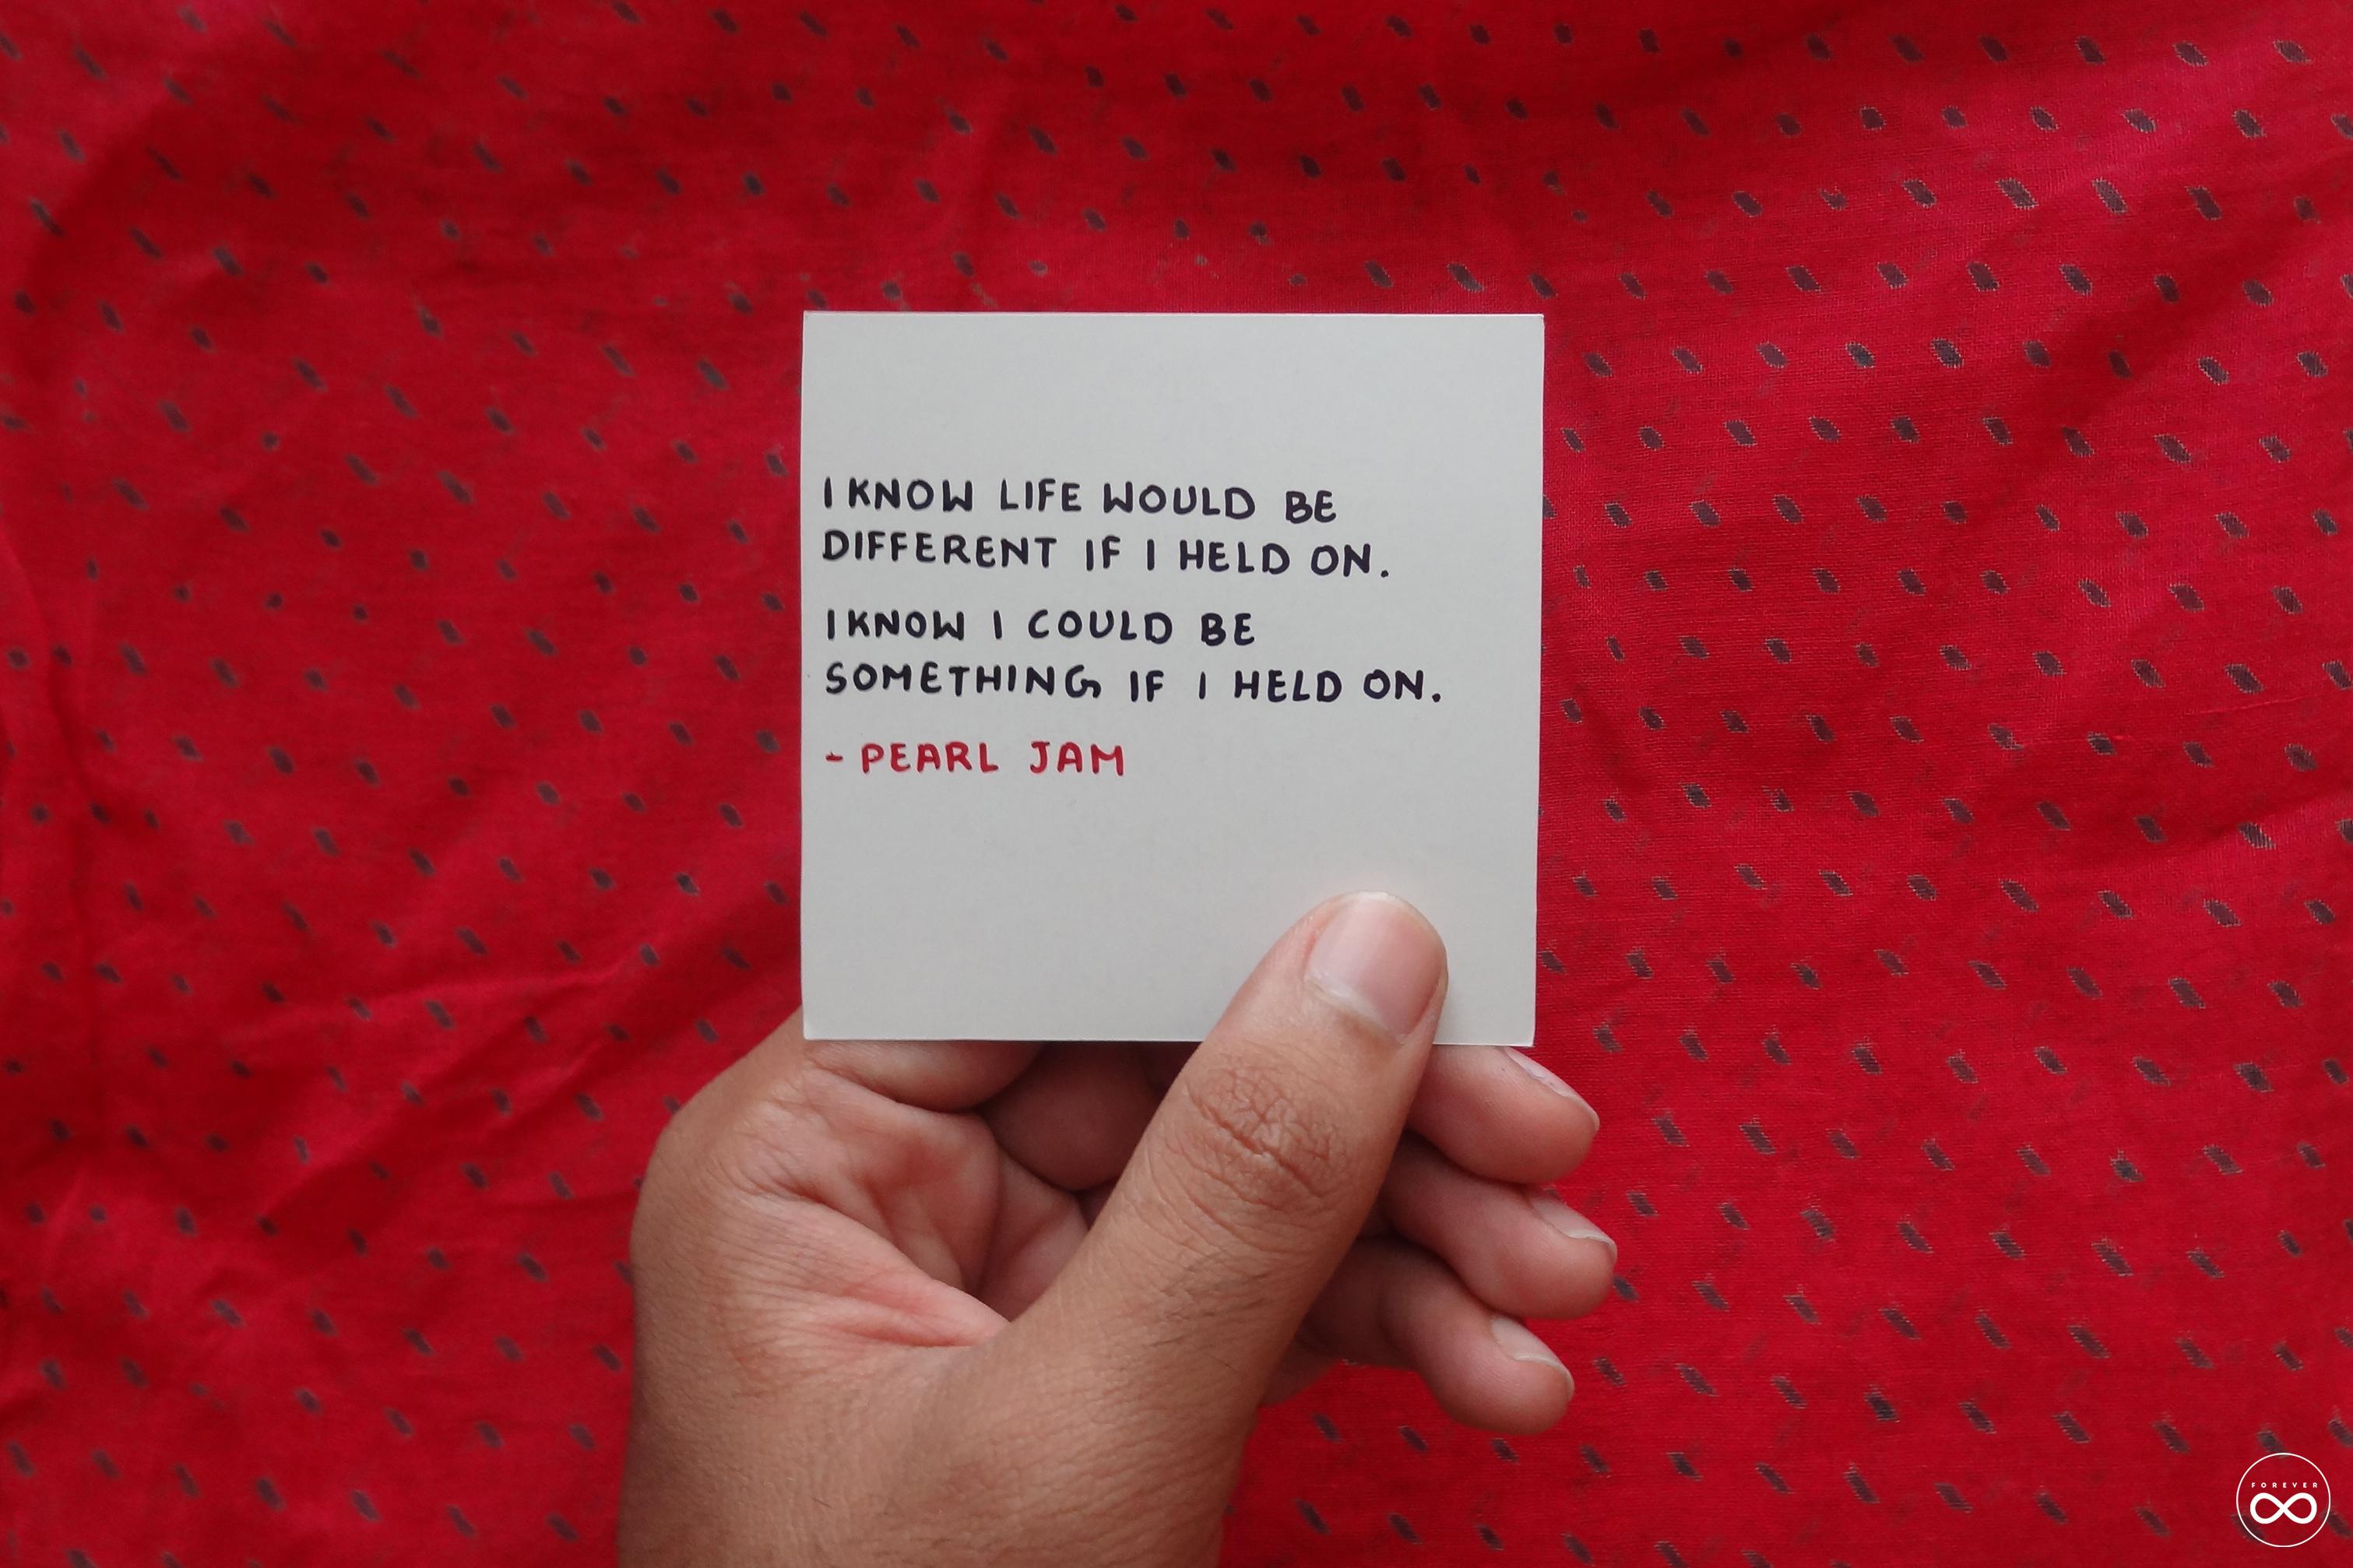 I KNOW LIFE WOULD BE
DIFFERENT IF I HELD ON.
I KNOW I COULD BE
SOMETHING IF I HELD ON.
- PEARL JAM
FOREVER